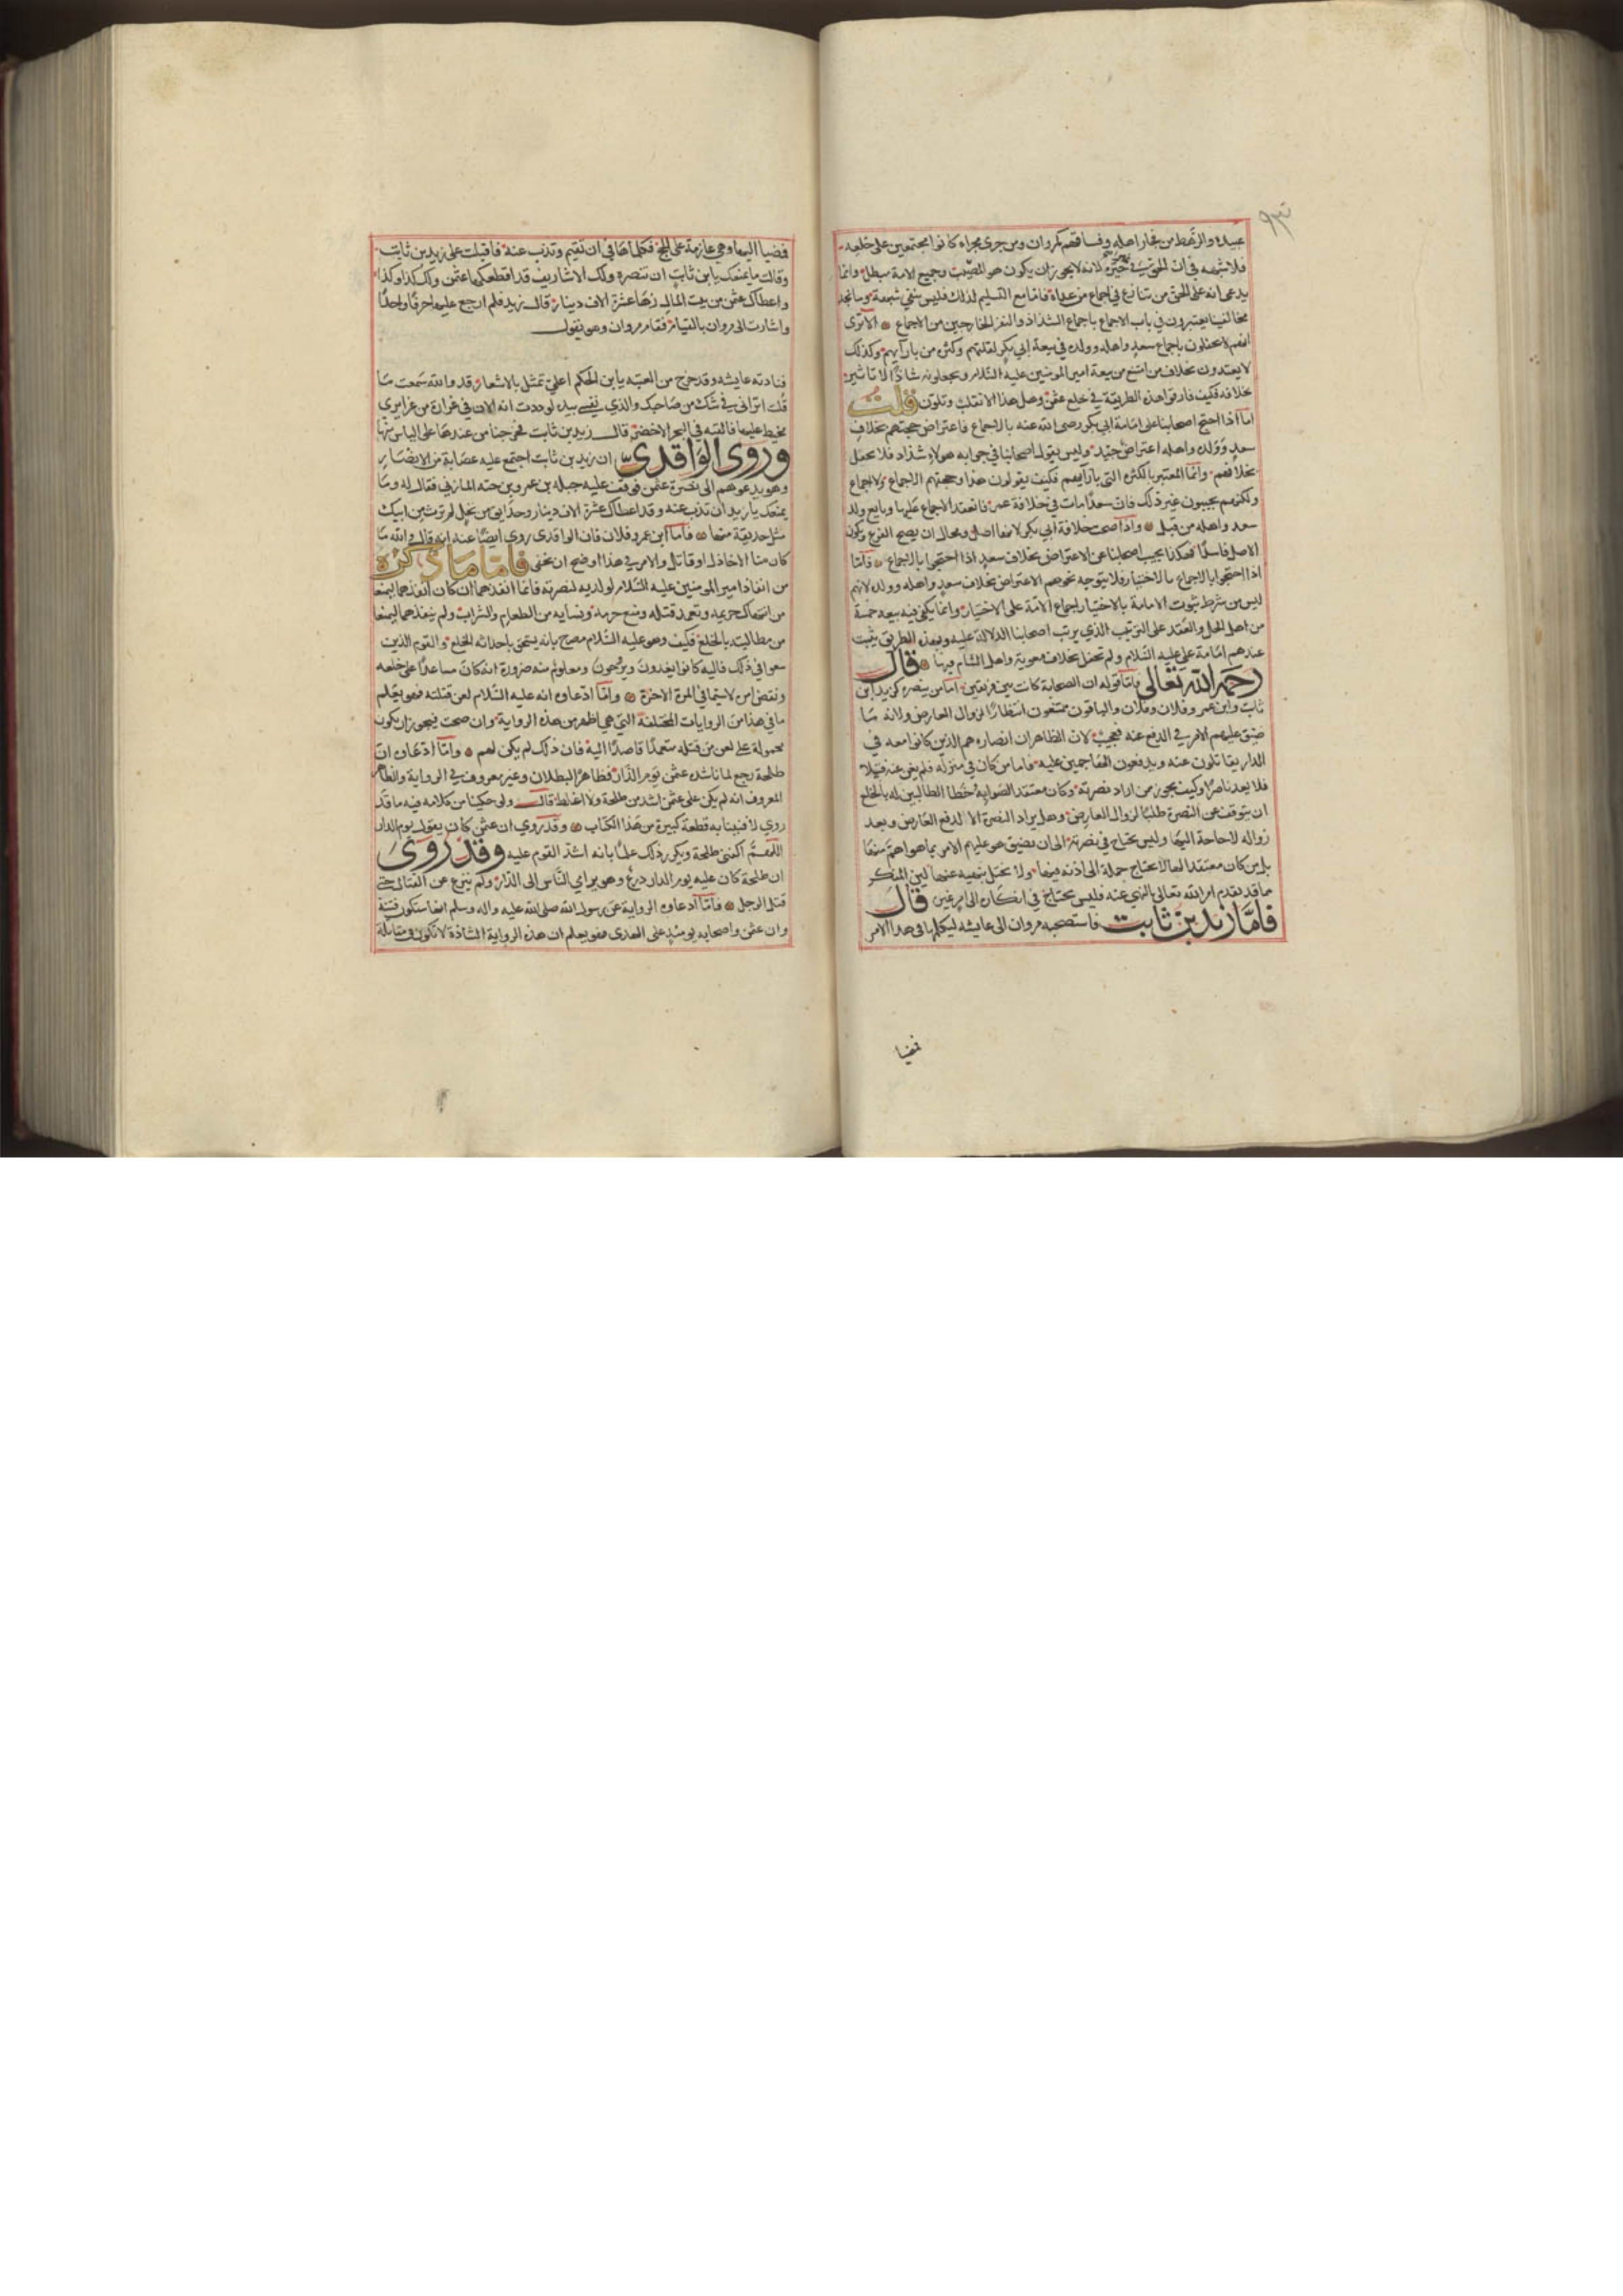 عبيده والرهط من فجار اهله وفساقهم كمروان ومن جرى مجراه كانوا مجتمعين على خلعه
فلا شبهة في ان الحق في غير حيزه لانه لا يجوز ان يكون هو المصيب وجميع الامة مبطل وانما
يدعى انه على الحق من تنازع في اجماع من عداه فاما مع التسليم لذلك فليس تبقى شبهة وما نجد
مخالفينا يعتبرون في باب الاجماع باجماع الشذاذ والنفر الخارجين من الاجماع الا ترى
انهم لا يحفلون باجماع سعد واهله وولده في بيعة ابي بكر لقلتهم وكثرة من بازآيهم وكذلك
لا يعتدون بخلاف من امتنع من بيعة امير المومنين عليه السلام ويجعلونه شاذا لا تاثير
بخلافه فكيف فارقوا هذه الطريقة في خلع عثمن وهل هذا الا تقلب وتلون قلت
اما اذا احتج اصحابنا على امامة ابي بكر رضى الله عنه بالاجماع فاعتراض حجتهم بخلاف
سعد وولده واهله اعتراض جيد وليس يقول اصحابنا في جوابه هولاء شذاذ فلا يحفل
بخلافهم وانما المعتبر بالكثره التي بازآيهم فكيف يقولون هذا وحجتهم الاجماع ولا اجماع
ولكنهم يجيبون غير ذلك فان سعدا مات في خلافة عمر فانعقد الاجماع عليها وبايع ولد
سعد واهله من قبل واذا صحت خلافة ابي بكر لانها اصل ومحال ان يصح الفرع ويكون
الاصل فاسدا فهكذا يجيب اصحابنا عن الاعتراض بخلاف سعد اذا احتجوا بالاجماع فاما
اذا احتجوا بالاجماع بالاختيار فلا يتوجه نحوهم الاعتراض بخلاف سعد واهله وولده لانهم
ليس من شرط ثبوت الامامة بالاختيار اجماع الامة على الاختيار وانما يكفى فيه بيعه خمسة
من اهل الحل والعقد على الترتيب الذي يرتب اصحابنا الدلالة عليه وبهذه الطريق يثبت
عندهم امامة على عليه السلام ولم تحفل بخلاف معوية واهل الشام فيها قال
رحمه الله تعالى فاما قوله ان الصحابة كانت بين فريقين اما من ينصره كزيد بن
ثابت وابن عمر وفلان وفلان والباقون ممتنعون انتظارا لزوال العارض ولانه ما
ضيق عليهم الامر في الدفع عنه فعجيب لان الظاهر ان انصاره هم الذين كانوا معه في
الدار يقاتلون عنه ويدفعون الهاجمين عليه فاما من كان في منزله فلم يغن عنه فتيلا
فلا يعد ناصرا وكيف يجوز من اراد نصرته وكان معتقد الصوابه خطا الطالبين له بالخلع
ان يتوقف عن النصرة طلبا لزوال العارض وهل يراد النصرة الا لدفع العارض وبعد
زواله لا حاجة اليها وليس يحتاج في نصرته الى ان يضيق هو عليهم الامر بما هو اهم منها
بل من كان معتقدا لها لا يحتاج حملة الى اذنه فيها ولا يحفل بنهيه عنها لان المنكر
ما قد تقدم امر الله تعالى بالنهي عنه فليس يحتاج في انكاره الى امر غيره قال
فاما زيد بن ثابت فاستصحبه مروان الى عايشه ليكلمها في هذا الامر
فمضيا
فمضيا اليها وهي عازمة على الحج فكلماها في ان تقيم وتذب عنه فاقبلت على زيد بن ثابت
وقالت ما يمنعك يا بن ثابت ان تنصره ولك الاشاريف قد اقطعكها عثمن ولك كذا وكذا
واعطاك عثمن من بيت المال زها عشرة الاف دينار قال زيد فلم ارجع عليها حرفا واحدا
واشارت الى مروان بالقيام فقام مروان وهو يقول
فنادته عايشه وقد خرج من العتبه يا بن الحكم اعلى تمثل بالاشعار قد والله سمعت ما
قلت اتراني في شك من صاحبك والذي نفسي بيده لوددت انه الان في غرارة من غرايري
مخيط عليها فالقيه في البحر الاخضر قال زيد بن ثابت فخرجنا من عندها على الياس منها
وروى الواقدى ان زيد بن ثابت اجتمع عليه عصابة من الانصار
وهو يدعوهم الى نصرة عثمن فوقف عليه جبله بن عمرو بن حنه المازني فقال له وما
يمنعك يا زيد ان تذب عنه وقد اعطاك عشرة الاف دينار وحدايق من نخل لم ترث من ابيك
مثل حديقة منها فاما ابن عمر وفلان فان الواقدى روى ايضا عنه انه قال والله ما
كان منا الا خاذل او قاتل والامر في هذا اوضح ان يخفى فاما ما ذكره
من انفاذ امير المومنين عليه السلام لولديه لنصرته فانما انفذهما ان كان انفذهما ليمنعا
من انتهاك حريمه وتعمد قتله ومنع حرمه ونسايه من الطعام والشراب ولم ينفذهما ليمنعا
من مطالبته بالخلع فكيف وهو عليه السلام مصرح بانه يستحق باحداثه الخلع والقوم الذين
سعوا في ذلك فاليه كانوا يغدون ويروحون ومعلوم منه ضرورة انه كان مساعدا على خلعه
ونقض امره لاسيما في المرة الاخرة واما ادعاوه انه عليه السلام لعن قتلته فهو يعلم
ما في هذا من الروايات المختلفة التي هي اظهر من هذه الرواية وان صحت فيجوز ان يكون
محمولة على لعن من قتله متعمدا قاصدا اليه فان ذلك لم يكن لهم واما ادعاوه ان
طلحة رجع لما ناشده عثمن يوم الدار فظاهر البطلان وغير معروف في الرواية والظاهر
المعروف انه لم يكن على عثمن اشد من طلحة ولا اغلظ قال ولو حكينا من كلامه فيه ما قد
روي لافنينا به قطعة كبيرة من هذا الكتاب وقد روي ان عثمن كان يقول يوم الدار
اللهم اكفنى طلحة ويكرر ذلك علما بانه اشد القوم عليه وقد روى
ان طلحة كان عليه يوم الدار درع وهو يرامي الناس الى الدار ولم ينزع عن القتال حتى
قتل الرجل فاما ادعاوه الرواية عن رسول الله صلى الله عليه واله وسلم انها ستكون فتنة
وان عثمن واصحابه يومئذ على الهدى فهو يعلم ان هذه الرواية الشاذة لا تكون في مقابلة